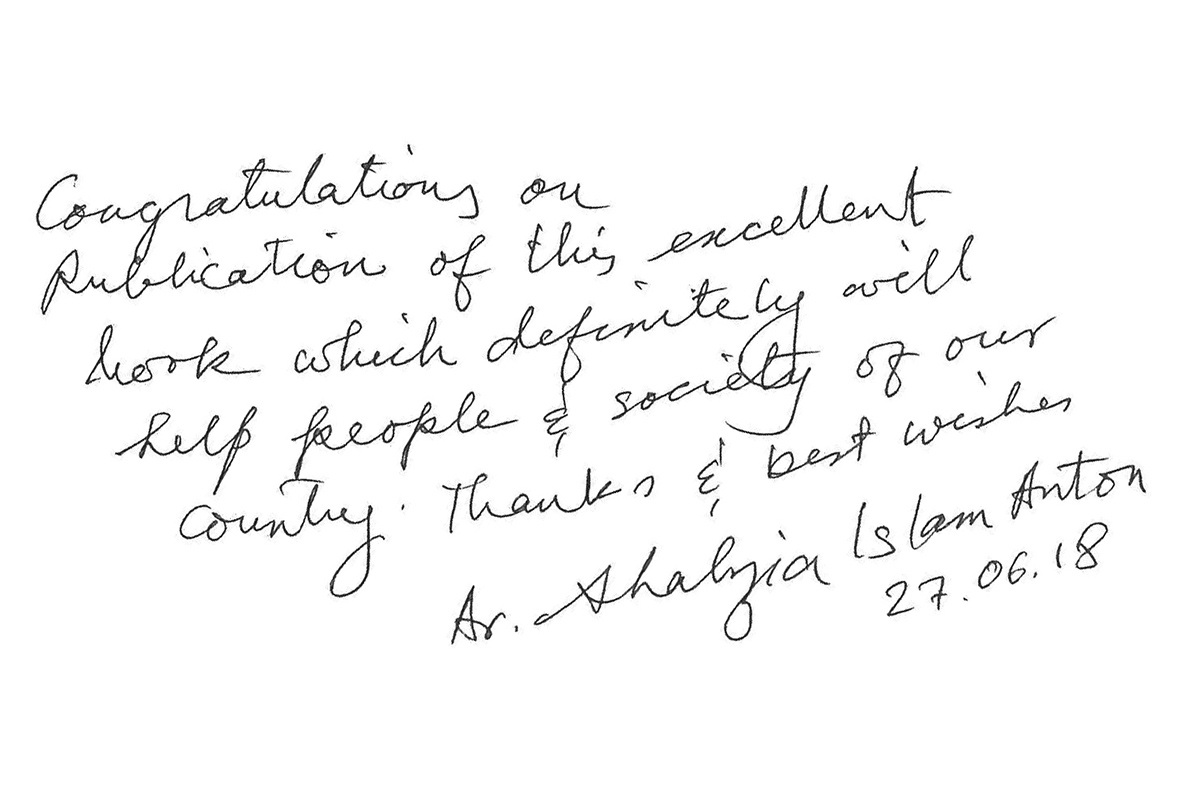 Congratulations on
Publication of this excellent
book which definitely will
help people & society of our
country. Thanks & best wishes
Ar. Islam Anton
27.06.18